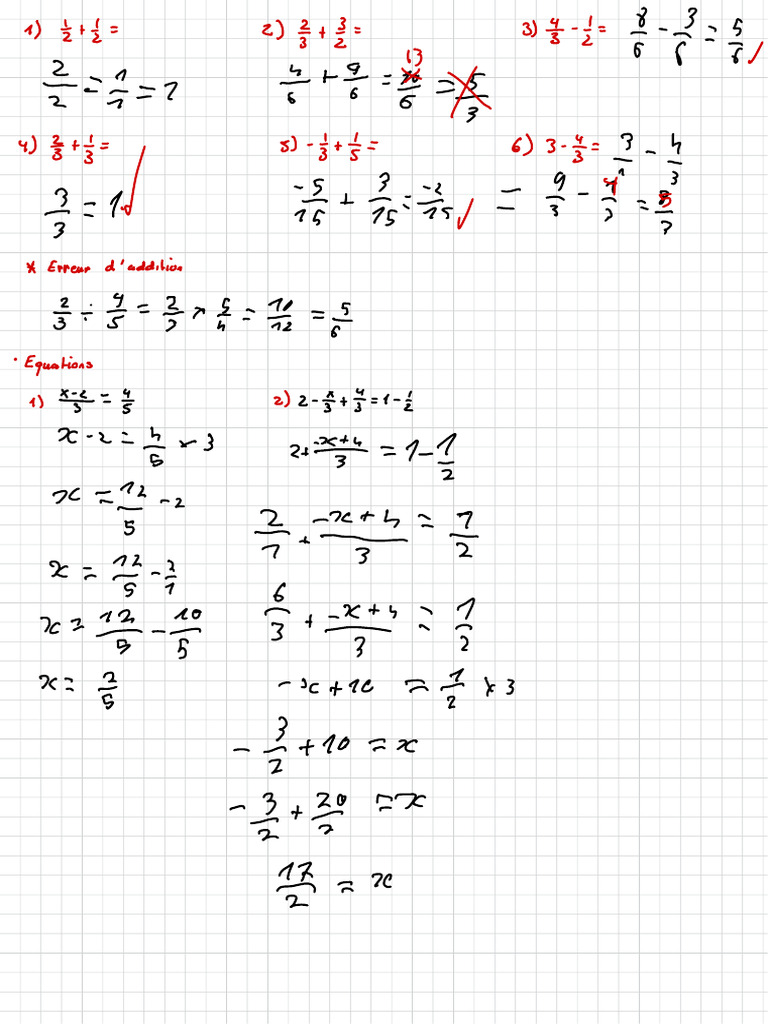 1) 1/2 + 1/2 =
2/2 = 1/1 = 1
2) 2/3 + 3/2 =
4/6 + 9/6 = 13/6 = 5/3
3) 4/3 - 1/2 = 8/6 - 3/6 = 5/6 ✓
4) 2/3 + 1/3 =
3/3 = 1 ✓
5) -1/3 + 1/5 =
-5/15 + 3/15 = -2/15 ✓
6) 3 - 4/3 = 3/1 - 4/3
= 9/3 - 4/3 = 5/3
* Erreur d'addition
2/3 ÷ 4/5 = 2/3 × 5/4 = 10/12 = 5/6
· Equations
1) (x-2)/3 = 4/5
x - 2 = 4/5 × 3
x = 12/5 - 2
x = 12/5 - 2/1
x = 12/5 - 10/5
x = 2/5
2) 2 - x/3 + 4/3 = 1 - 1/2
2 + (-x+4)/3 = 1 - 1/2
2/1 + (-x+4)/3 = 1/2
6/3 + (-x+4)/3 = 1/2
-x + 10 = 1/2 × 3
-3/2 + 10 = x
-3/2 + 20/2 = x
17/2 = x